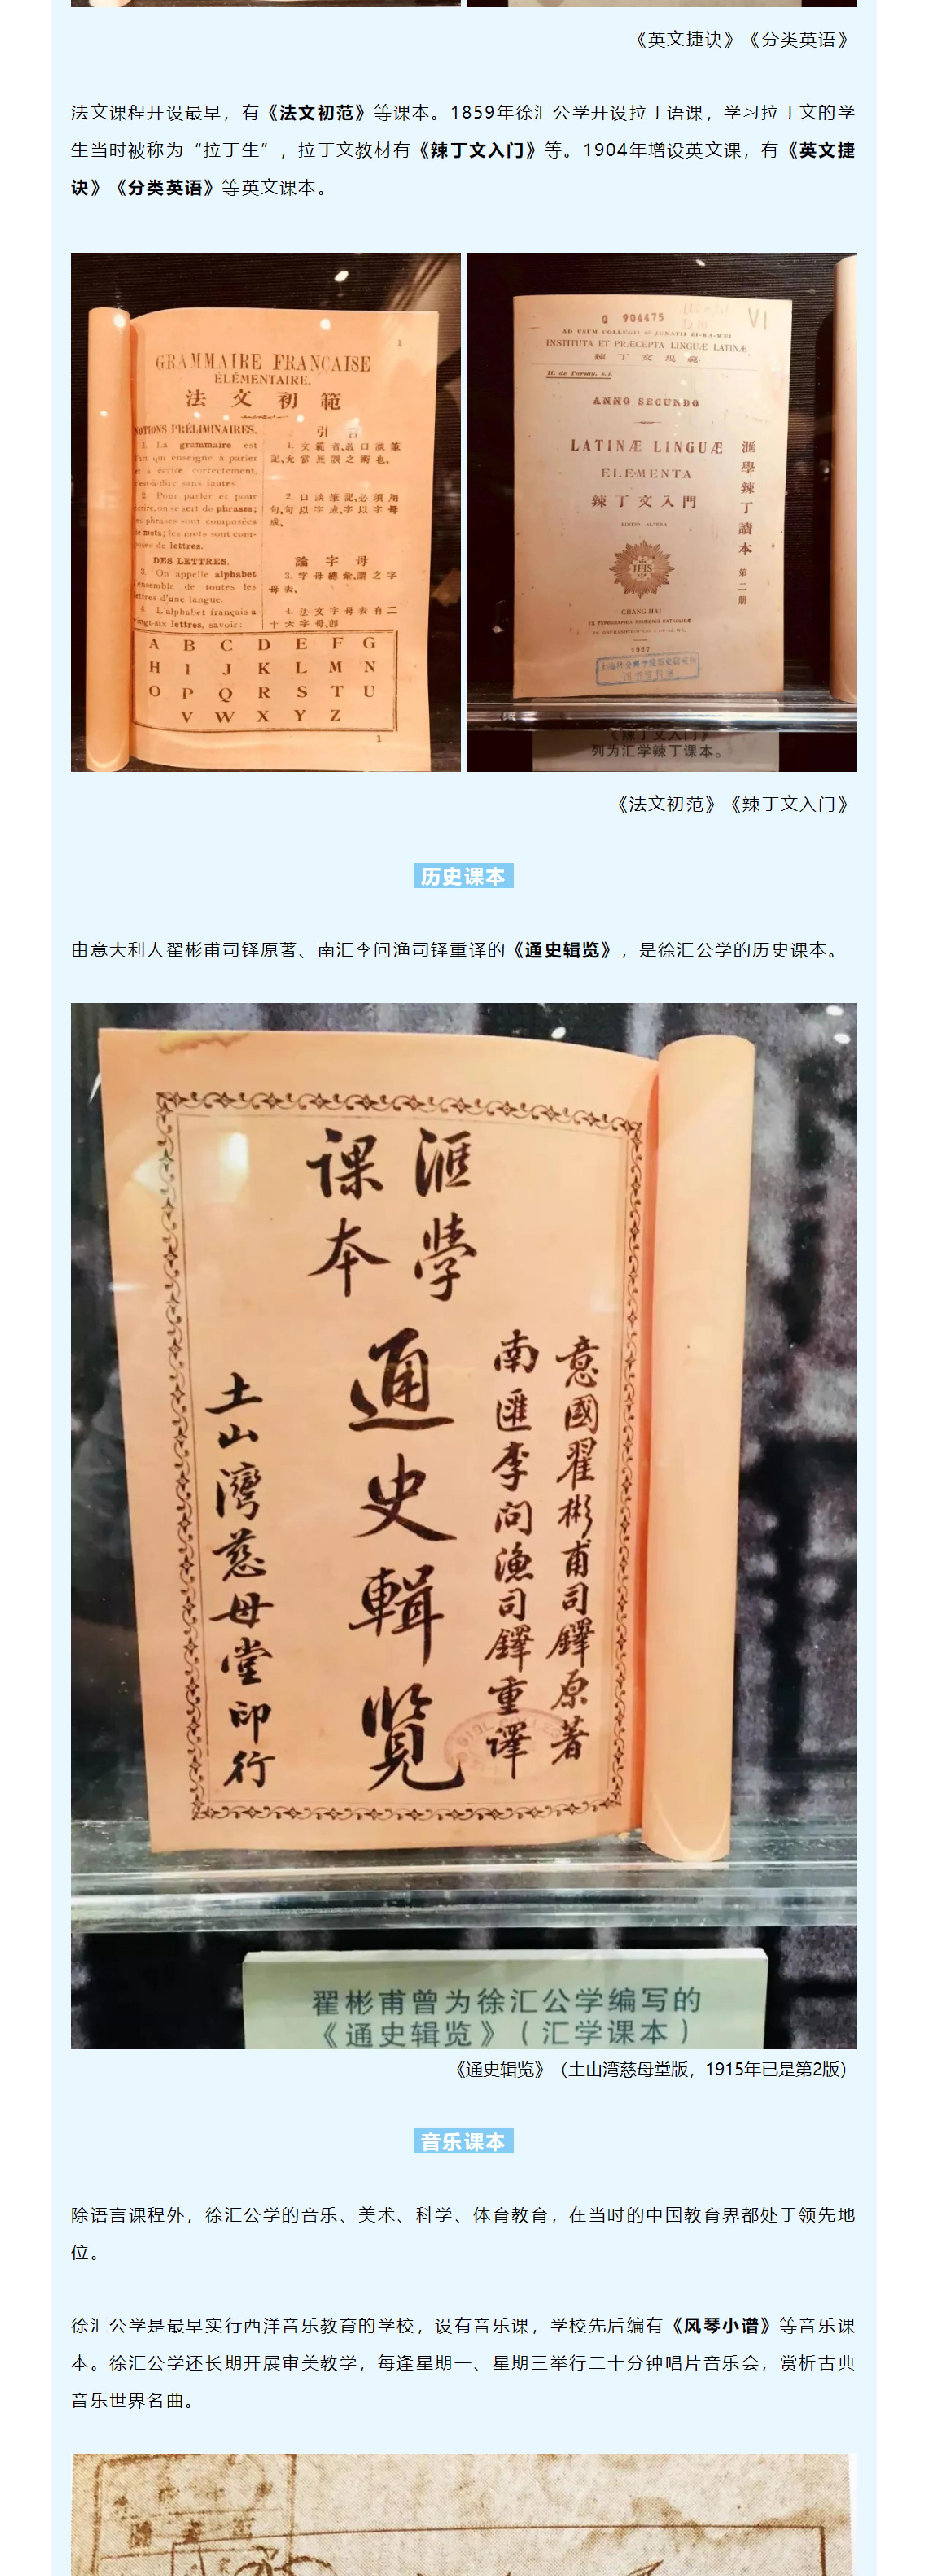 《英文捷诀》《分类英语》
法文课程开设最早，有《法文初范》等课本。1859年徐汇公学开设拉丁语课，学习拉丁文的学
生当时被称为“拉丁生”，拉丁文教材有《辣丁文入门》等。1904年增设英文课，有《英文捷
诀》《分类英语》等英文课本。
GRAMMAIRE FRANÇAISE
ÉLÉMENTAIRE.
法文初範
NOTIONS PRÉLIMINAIRES.
1. La grammaire est
l'art qui enseigne à parler
et à écrire correctement,
c'est-à-dire sans fautes.
2. Pour parler et pour
écrire, on se sert de phrases;
les phrases sont composées
de mots; les mots sont com-
posés de lettres.
DES LETTRES.
3. On appelle alphabet
l'ensemble de toutes les
lettres d'une langue.
4. L'alphabet français a
vingt-six lettres, savoir:
引言
2. 口談筆記,必須用
句,句以字成,字以字母
成。
論字母
3. 字母總彙,謂之字
母表。
4. 法文字母表有二
十六字母,即
A B C D E F G
H I J K L M N
O P Q R S T U
V W X Y Z
1
Q 904475
VI
AD USUM COLLEGII S. IGNATII ZI-KA-WEI
INSTITUTA ET PRÆCEPTA LINGUÆ LATINÆ
辣丁文規範
ANNO SECUNDO
LATINÆ LINGUÆ
ELEMENTA
辣丁文入門
EDITIO ALTERA
IHS
CHANG-HAI
1927
滙學辣丁讀本 第二册
《辣丁文入门》
列为汇学辣丁课本。
《法文初范》《辣丁文入门》
历史课本
由意大利人翟彬甫司铎原著、南汇李问渔司铎重译的《通史辑览》，是徐汇公学的历史课本。
滙學
课本
意國翟彬甫司鐸原著
南匯李问渔司鐸重譯
通史輯览
土山灣慈母堂印行
翟彬甫曾为徐汇公学编写的
《通史辑览》（汇学课本）
《通史辑览》（土山湾慈母堂版，1915年已是第2版）
音乐课本
除语言课程外，徐汇公学的音乐、美术、科学、体育教育，在当时的中国教育界都处于领先地
位。
徐汇公学是最早实行西洋音乐教育的学校，设有音乐课，学校先后编有《风琴小谱》等音乐课
本。徐汇公学还长期开展审美教学，每逢星期一、星期三举行二十分钟唱片音乐会，赏析古典
音乐世界名曲。